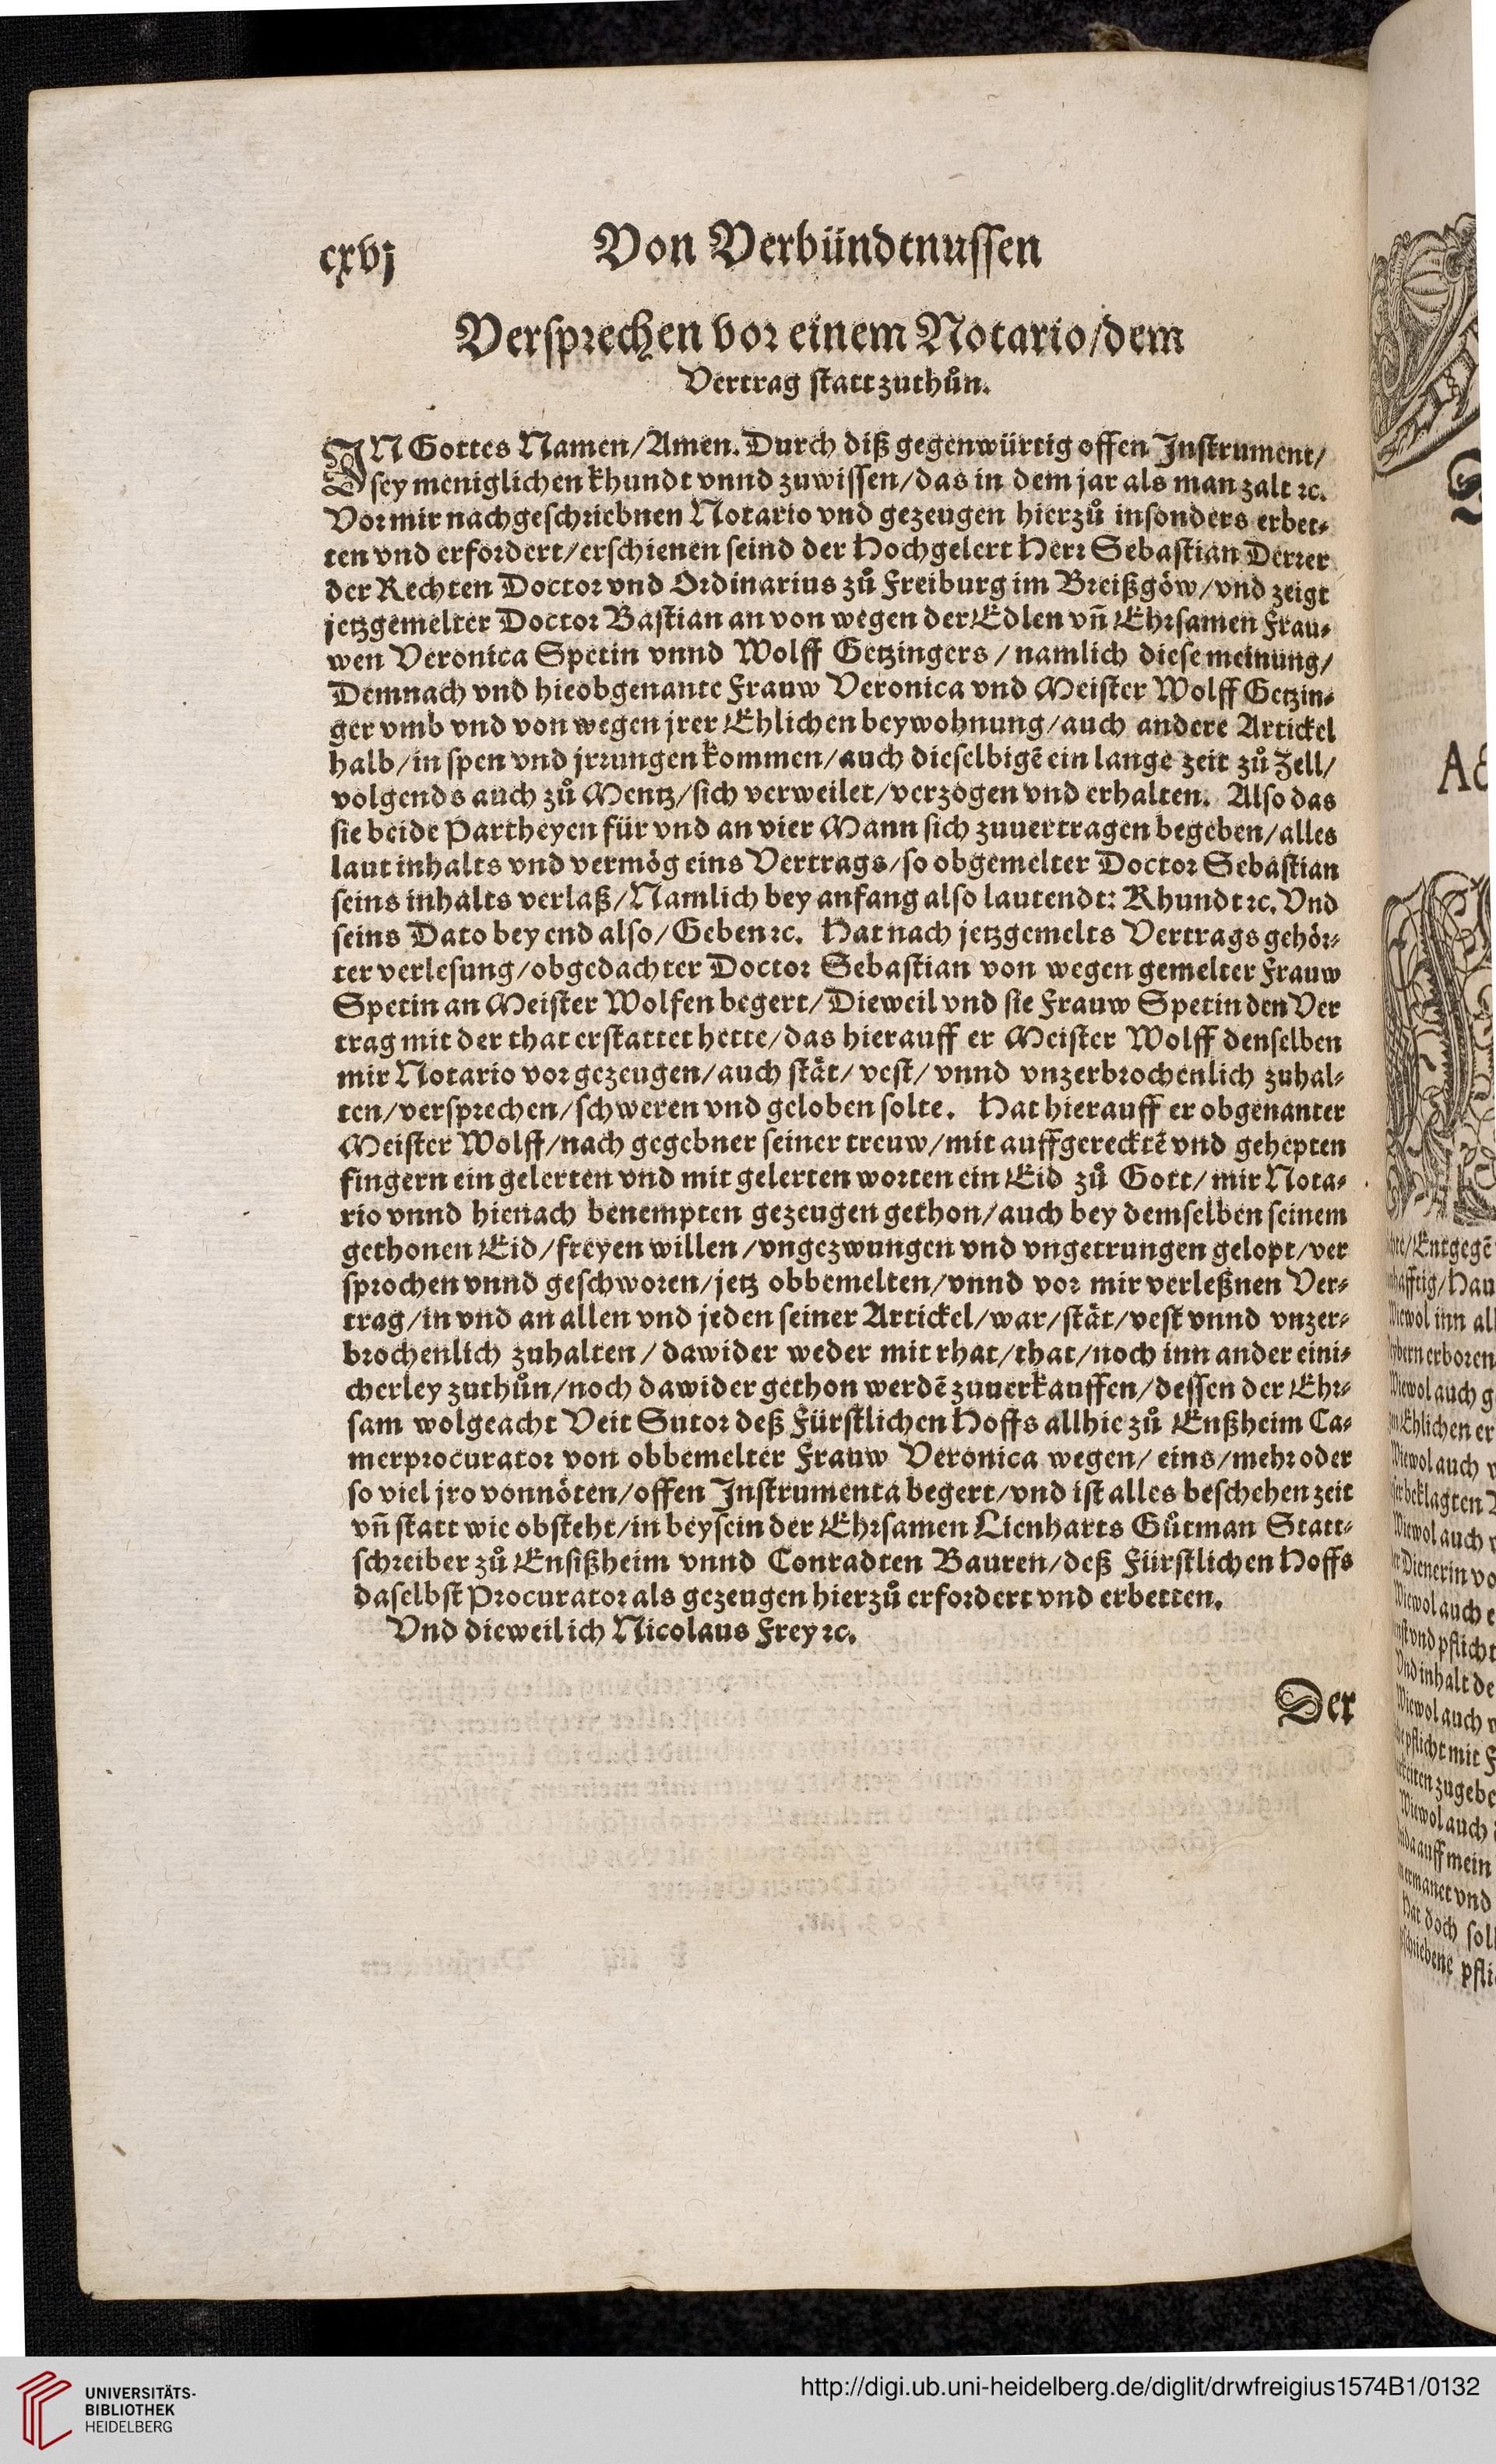 cxvj
Von Verbündtnussen
Versprechen vor einem Notario/dem
Vertrag statt zuthůn.
IN Gottes Namen/Amen. Durch diß gegenwürtig offen Instrument/
sey meniglichen khundt vnnd zuwissen/das in dem jar als man zalt ꝛc.
Vor mir nachgeschriebnen Notario vnd gezeugen hierzů insonders erbet⸗
ten vnd erfordert/erschienen seind der Hochgelert Herr Sebastian Derrer
der Rechten Doctor vnd Ordinarius zů Freiburg im Breißgöw/vnd zeigt
jetzgemelter Doctor Bastian an von wegen der Edlen vñ Ehrsamen Frau⸗
wen Veronica Spetin vnnd Wolff Getzingers/namlich diese meinung/
Demnach vnd hieobgenante Frauw Veronica vnd Meister Wolff Getzin⸗
ger vmb vnd von wegen jrer Ehlichen beywohnung/auch andere Artickel
halb/in spen vnd jrrungen kommen/auch dieselbigẽ ein lange zeit zů Zell/
volgends auch zů Mentz/sich verweilet/verzogen vnd erhalten. Also das
sie beide Partheyen für vnd an vier Mann sich zuuertragen begeben/alles
laut inhalts vnd vermög eins Vertrags/so obgemelter Doctor Sebastian
seins inhalts verlaß/Namlich bey anfang also lautendt: Khundt ꝛc. Vnd
seins Dato bey end also/Geben ꝛc. Hat nach jetzgemelts Vertrags gehör⸗
ter verlesung/obgedachter Doctor Sebastian von wegen gemelter Frauw
Spetin an Meister Wolfen begert/Dieweil vnd sie Frauw Spetin den Ver
trag mit der that erstattet hette/das hierauff er Meister Wolff denselben
mir Notario vor gezeugen/auch stät/vest/vnnd vnzerbrochenlich zuhal⸗
ten/versprechen/schweren vnd geloben solte. Hat hierauff er obgenanter
Meister Wolff/nach gegebner seiner treuw/mit auffgerecktẽ vnd gehepten
fingern ein gelerten vnd mit gelerten worten ein Eid zů Gott/mir Nota⸗
rio vnnd hienach benempten gezeugen gethon/auch bey demselben seinem
gethonen Eid/freyen willen/vngezwungen vnd vngetrungen gelopt/ver
sprochen vnnd geschworen/jetz obbemelten/vnnd vor mir verleßnen Ver⸗
trag/in vnd an allen vnd jeden seiner Artickel/war/stät/vest vnnd vnzer⸗
brochenlich zuhalten/dawider weder mit rhat/that/noch inn ander eini⸗
cherley zuthůn/noch dawider gethon werdẽ zuuerkauffen/dessen der Ehr⸗
sam wolgeacht Veit Sutor deß Fürstlichen Hoffs allhie zů Enßheim Ca⸗
merprocurator von obbemelter Frauw Veronica wegen/eins/mehr oder
so viel jro vonnöten/offen Instrumenta begert/vnd ist alles beschehen zeit
vñ statt wie obsteht/in beysein der Ehrsamen Lienharts Gůtman Statt⸗
schreiber zů Ensißheim vnnd Conradten Bauren/deß Fürstlichen Hoffs
daselbst Procurator als gezeugen hierzů erfordert vnd erbetten.
Vnd dieweil ich Nicolaus Frey ꝛc.
Der
Entgegẽ
Hau
Wiewol inn
erboren
Wiewol auch
Ehlichen er
Wiewol auch
Wiewol auch
Dienerin
Wiewol auch
vnd pflicht
Vnd inhalt de
Wiewol auch
mit
zugebe
Wiewol auch
auff mein
vnd
doch
UNIVERSITÄTS-
BIBLIOTHEK
HEIDELBERG
http://digi.ub.uni-heidelberg.de/diglit/drwfreigius1574B1/0132